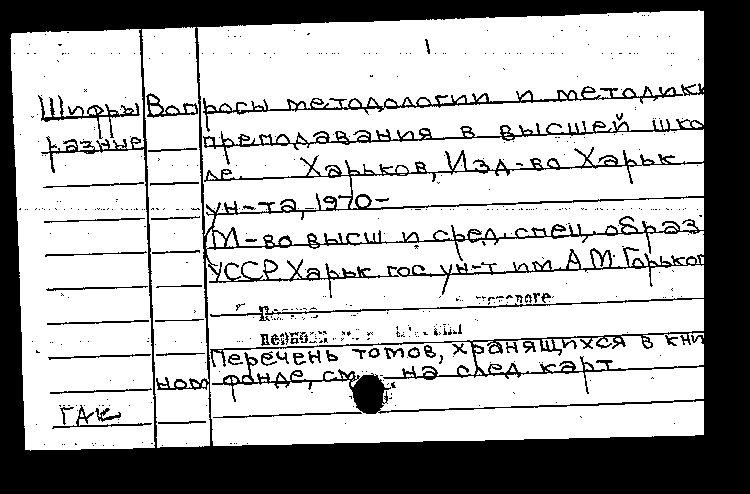 1
Шифры Вопросы методологии и методики
разные преподавания в высшей шко
ле. Харьков, Изд-во Харьк
ун-та, 1970-
(М-во высш и сред. спец. образ
УССР. Харьк гос ун-т им А.М. Горьког
каталоге
Перечень томов, хранящихся в кни
ном фонде, см. на след. карт.
ГАК